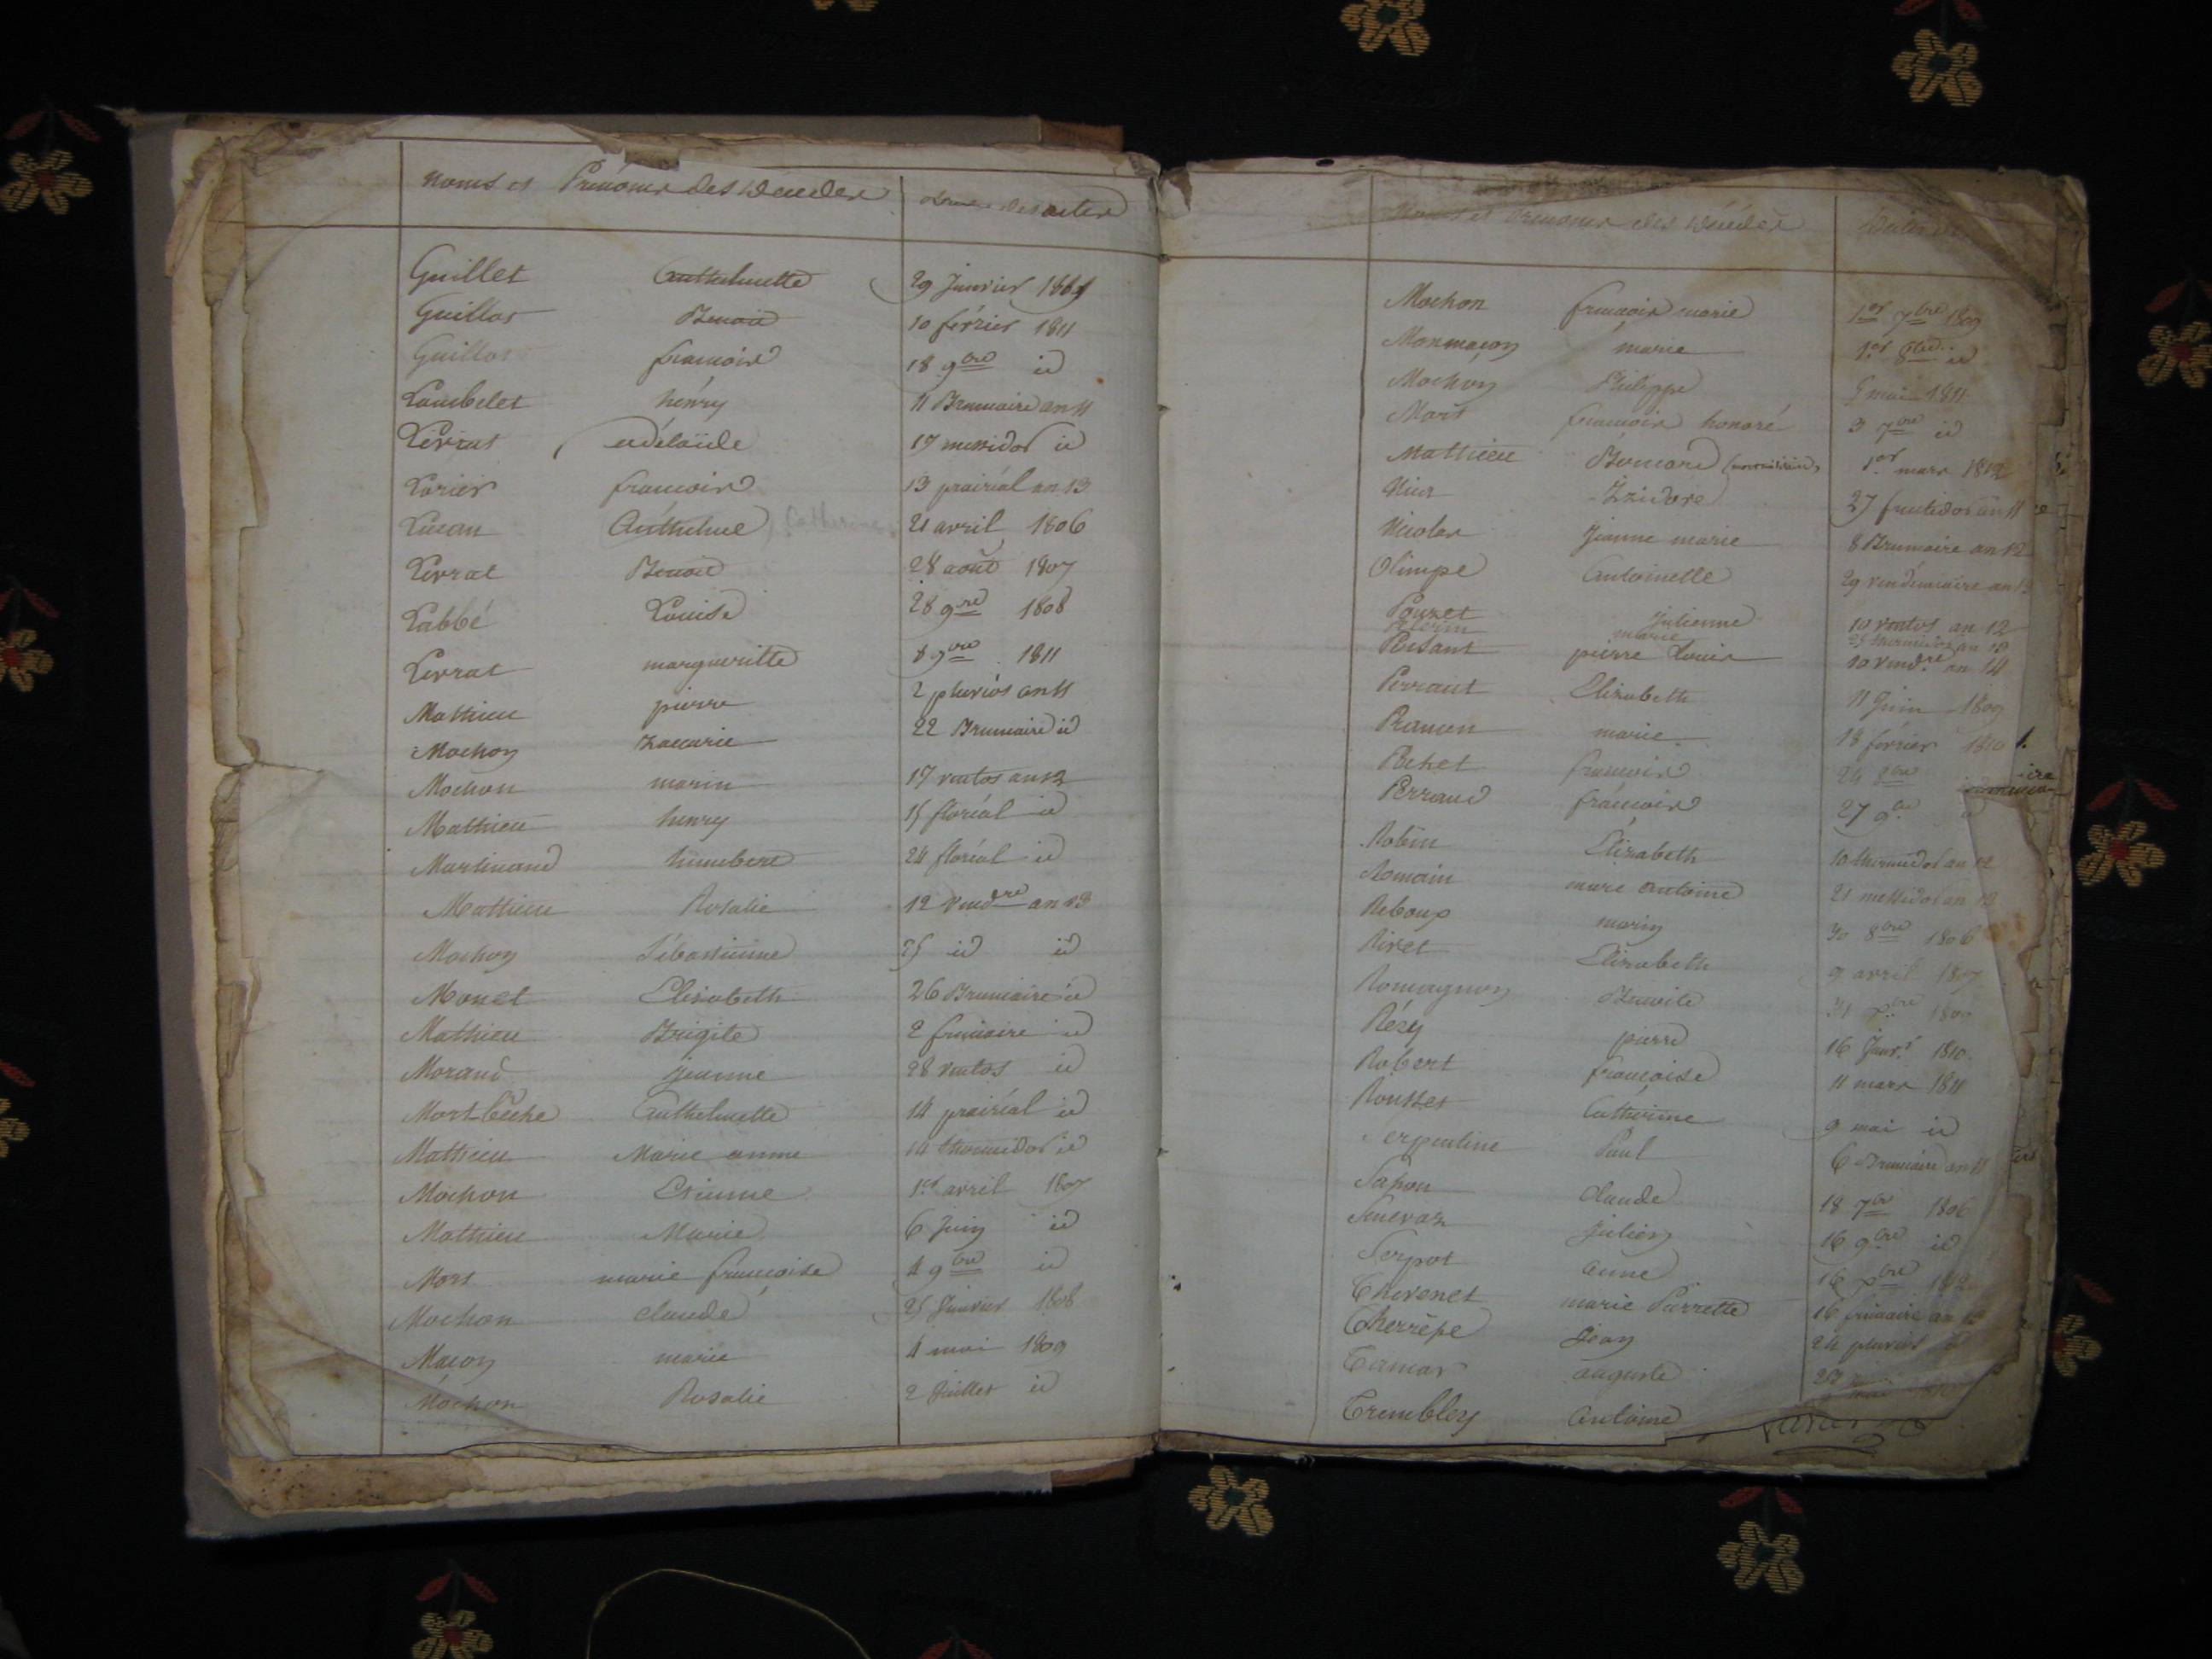 Noms et Prénoms des Décédés Dates des actes
Guillet Anthelmette 29 Janvier 1809
Guillot Benoit 10 février 1811
Guillot francois 18 9bre id
Lambelet hénry 11 Brumaire an 11
Livrat adélaïde 17 messidor id
Lorier francois 13 prairial an 13
Anthelme Catherine 21 avril 1806
Levrat Benoit 28 août 1807
Labbé Louise 28 9bre 1808
Levrat margueritte 8 9bre 1811
Mathieu pierre 2 pluviôs an 11
Mochon Zaccarie 22 Brumaire id
Mochon marin 17 ventos an 12
Mathieu henry 15 floréal id
Martinand humbert 24 floréal id
Mathieu Rosalie 12 vendre an 13
Mochon Sébastienne 25 id id
Monet Elisabeth 26 Brumaire id
Mathieu Brigite 2 frimaire id
Morand jeanne 28 ventos id
Anthelmette 14 prairial id
Mathieu Marie anne 14 thermidor id
Mochon Etienne 1er avril 1807
Mathieu Marie 6 Juin id
Mors marie francoise 4 9bre id
Mochon claude 25 Janvier 1808
Macon marie 4 mai 1809
Mochon Rosalie 2 Juillet id
Noms et Prénoms des Décédés Dates des
Mochon francois marie 1er 7bre 1809
Monmacon marie 1er 8bre id
Mochon Philippe 5 mai 1811
Mors francois honoré 3 7bre id
Mathieu 1er mars 1812
Izidore 27 fructidor an 11
Nicolas Jeanne marie 8 Brumaire an 12
Olimpe Antoinette 29 vendémiaire an 13
Pouzet Julienne 10 ventos an 12
marie 25 thermidor an 13
Poisant pierre Louis 10 vendre an 14
Perraut Elizabeth 11 Juin 1809
marie 18 février 1810
Pochet francois 24 8bre
Perraud francois 27 9bre id
Robin Elizabeth 10 thermidor an 12
Romain marc antoine 21 messidor an 13
Reboux marin 30 8bre 1806
Rivet Elizabeth 9 avril 1807
Romagnon Benoite 31
Rézy pierre 16 Janvr 1810
Robert francoise 11 mars 1811
Rousset Catherine 9 mai id
Serpentine Paul 6 Brumaire an 11
Sapon claude 18 7bre 1806
Senevaz Julien 16 9bre id
Serpot anne 16
Thevenet marie Pierrette 16 frimaire an
Jean 24 pluviôs
auguste 23
Trembley Antoine